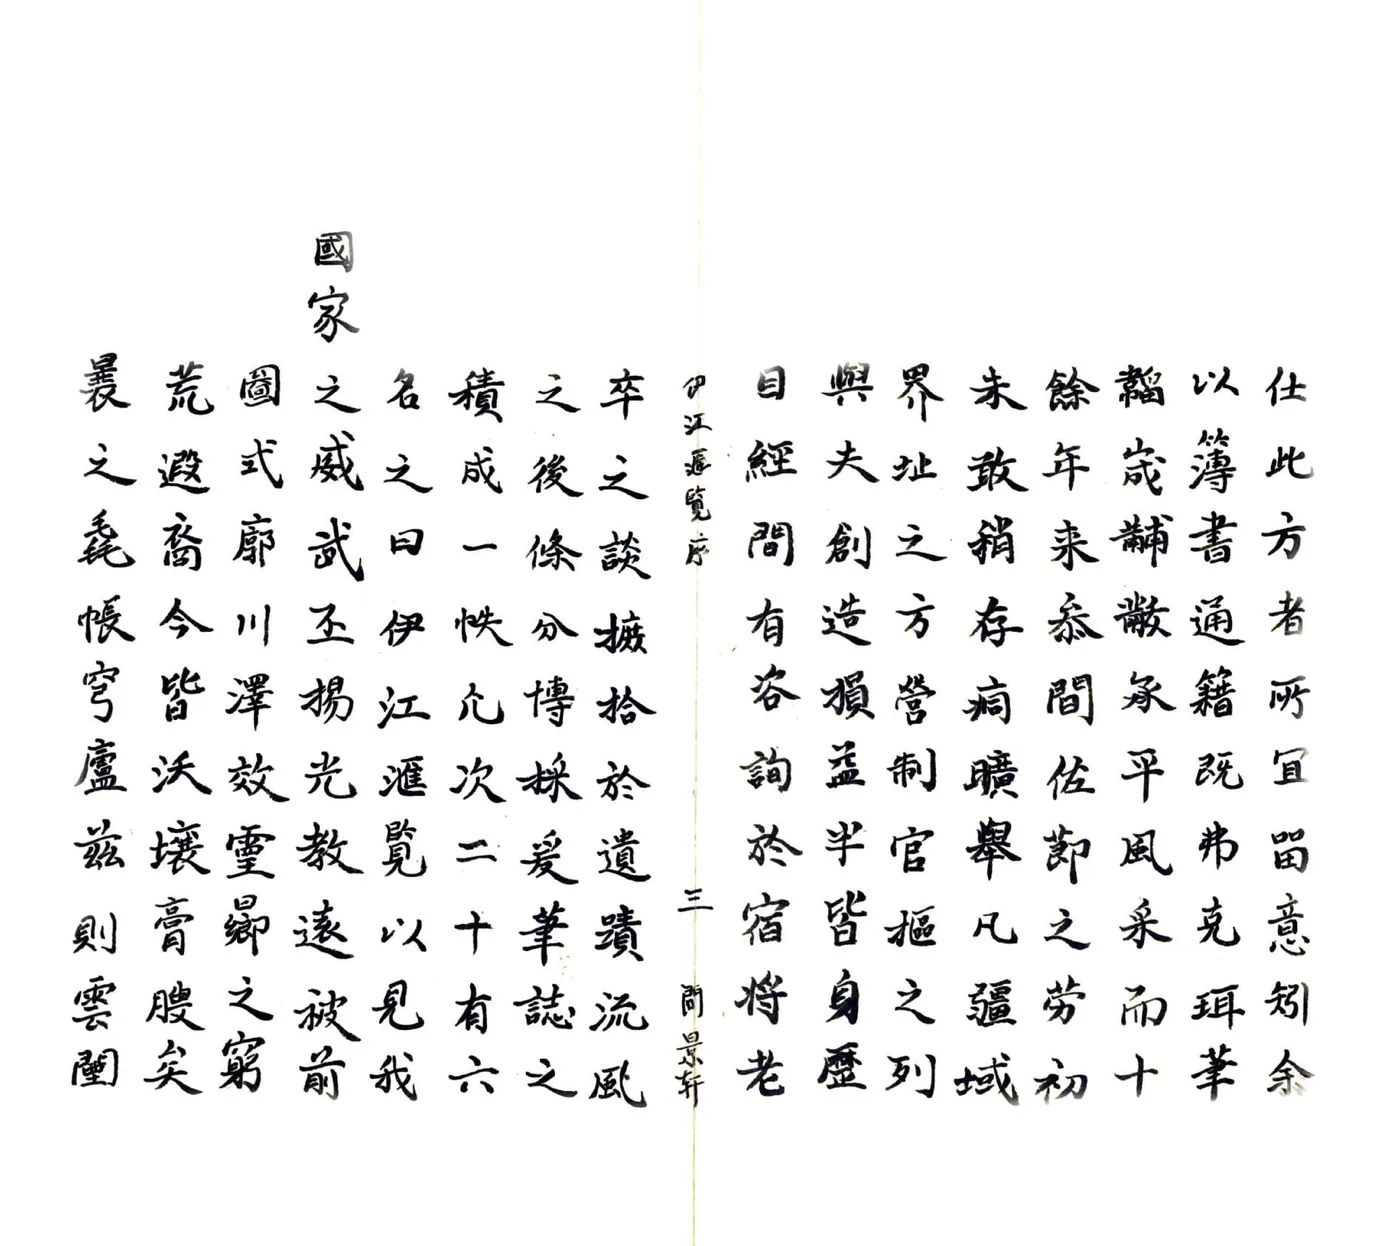 仕此方者所宜留意矧余
以簿書通籍既弗克珥筆
韜嵗黼黻承平風采而十
餘年来叅間佐莭之劳初
未敢稍存痌曠舉凡疆域
界址之方營制官樞之列
與夫創造損益半皆身歷
目經間有咨詢於宿将老
伊江滙覧序
三
問景轩
卒之談摭拾於遺蹟流風
之後條分博採爰筆誌之
積成一帙凢次二十有六
名之曰伊江滙覧以見我
國家之威武丕揚光教遠被前
圖式廓川澤效靈鄉之窮
荒遐裔今皆沃壤膏腴矣
曩之毳帳穹廬兹則雲闉